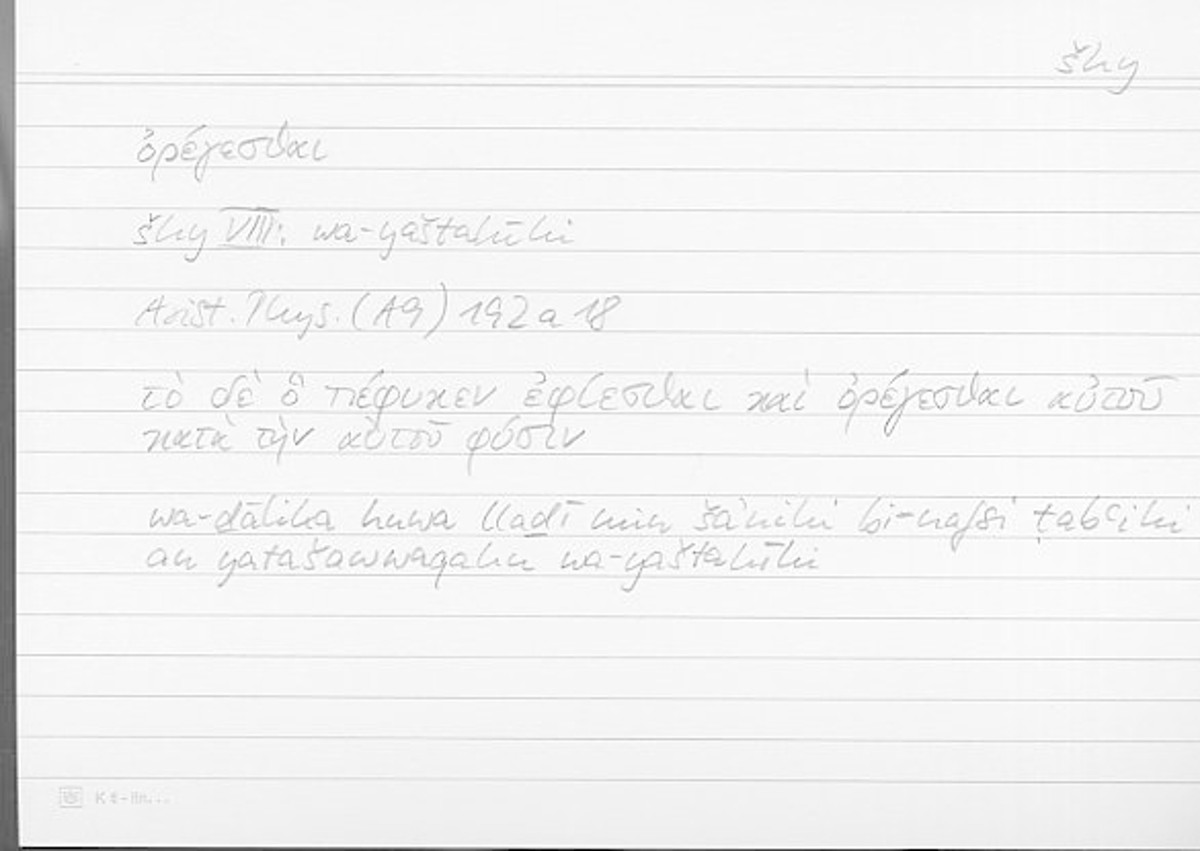 šhy
ὀρέγεσθαι
šhy VIII: wa-yaštahīhi
Arist. Phys. (A9) 192 a 18
τὸ δὲ ὃ πέφυκεν ἐφίεσθαι καὶ ὀρέγεσθαι αὐτοῦ
κατὰ τὴν αὑτοῦ φύσιν
wa-ḏālika huwa llaḏī min šaʾnihī bi-nafsi ṭabʿihi
an yatašawwaqahū wa-yaštahīhi